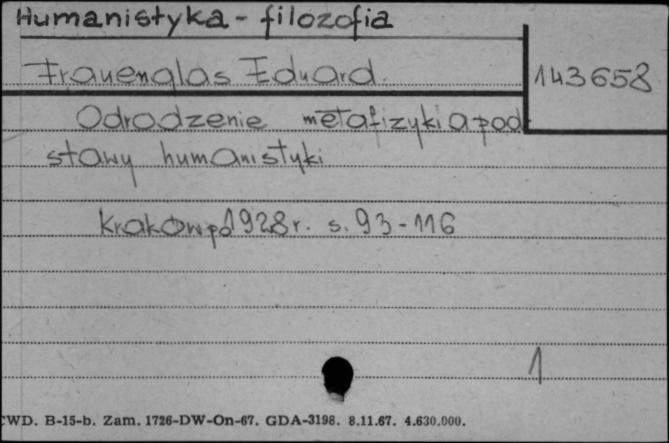 Humanistyka - filozofia
Frauenglas Eduard
143658
Odrodzenie metafizyki a pod
stawy humanistyki
Kraków po 1928 r. s. 93-116
1
CWD. B-15-b. Zam. 1726-DW-On-67. GDA-3198. 8.11.67. 4.630.000.